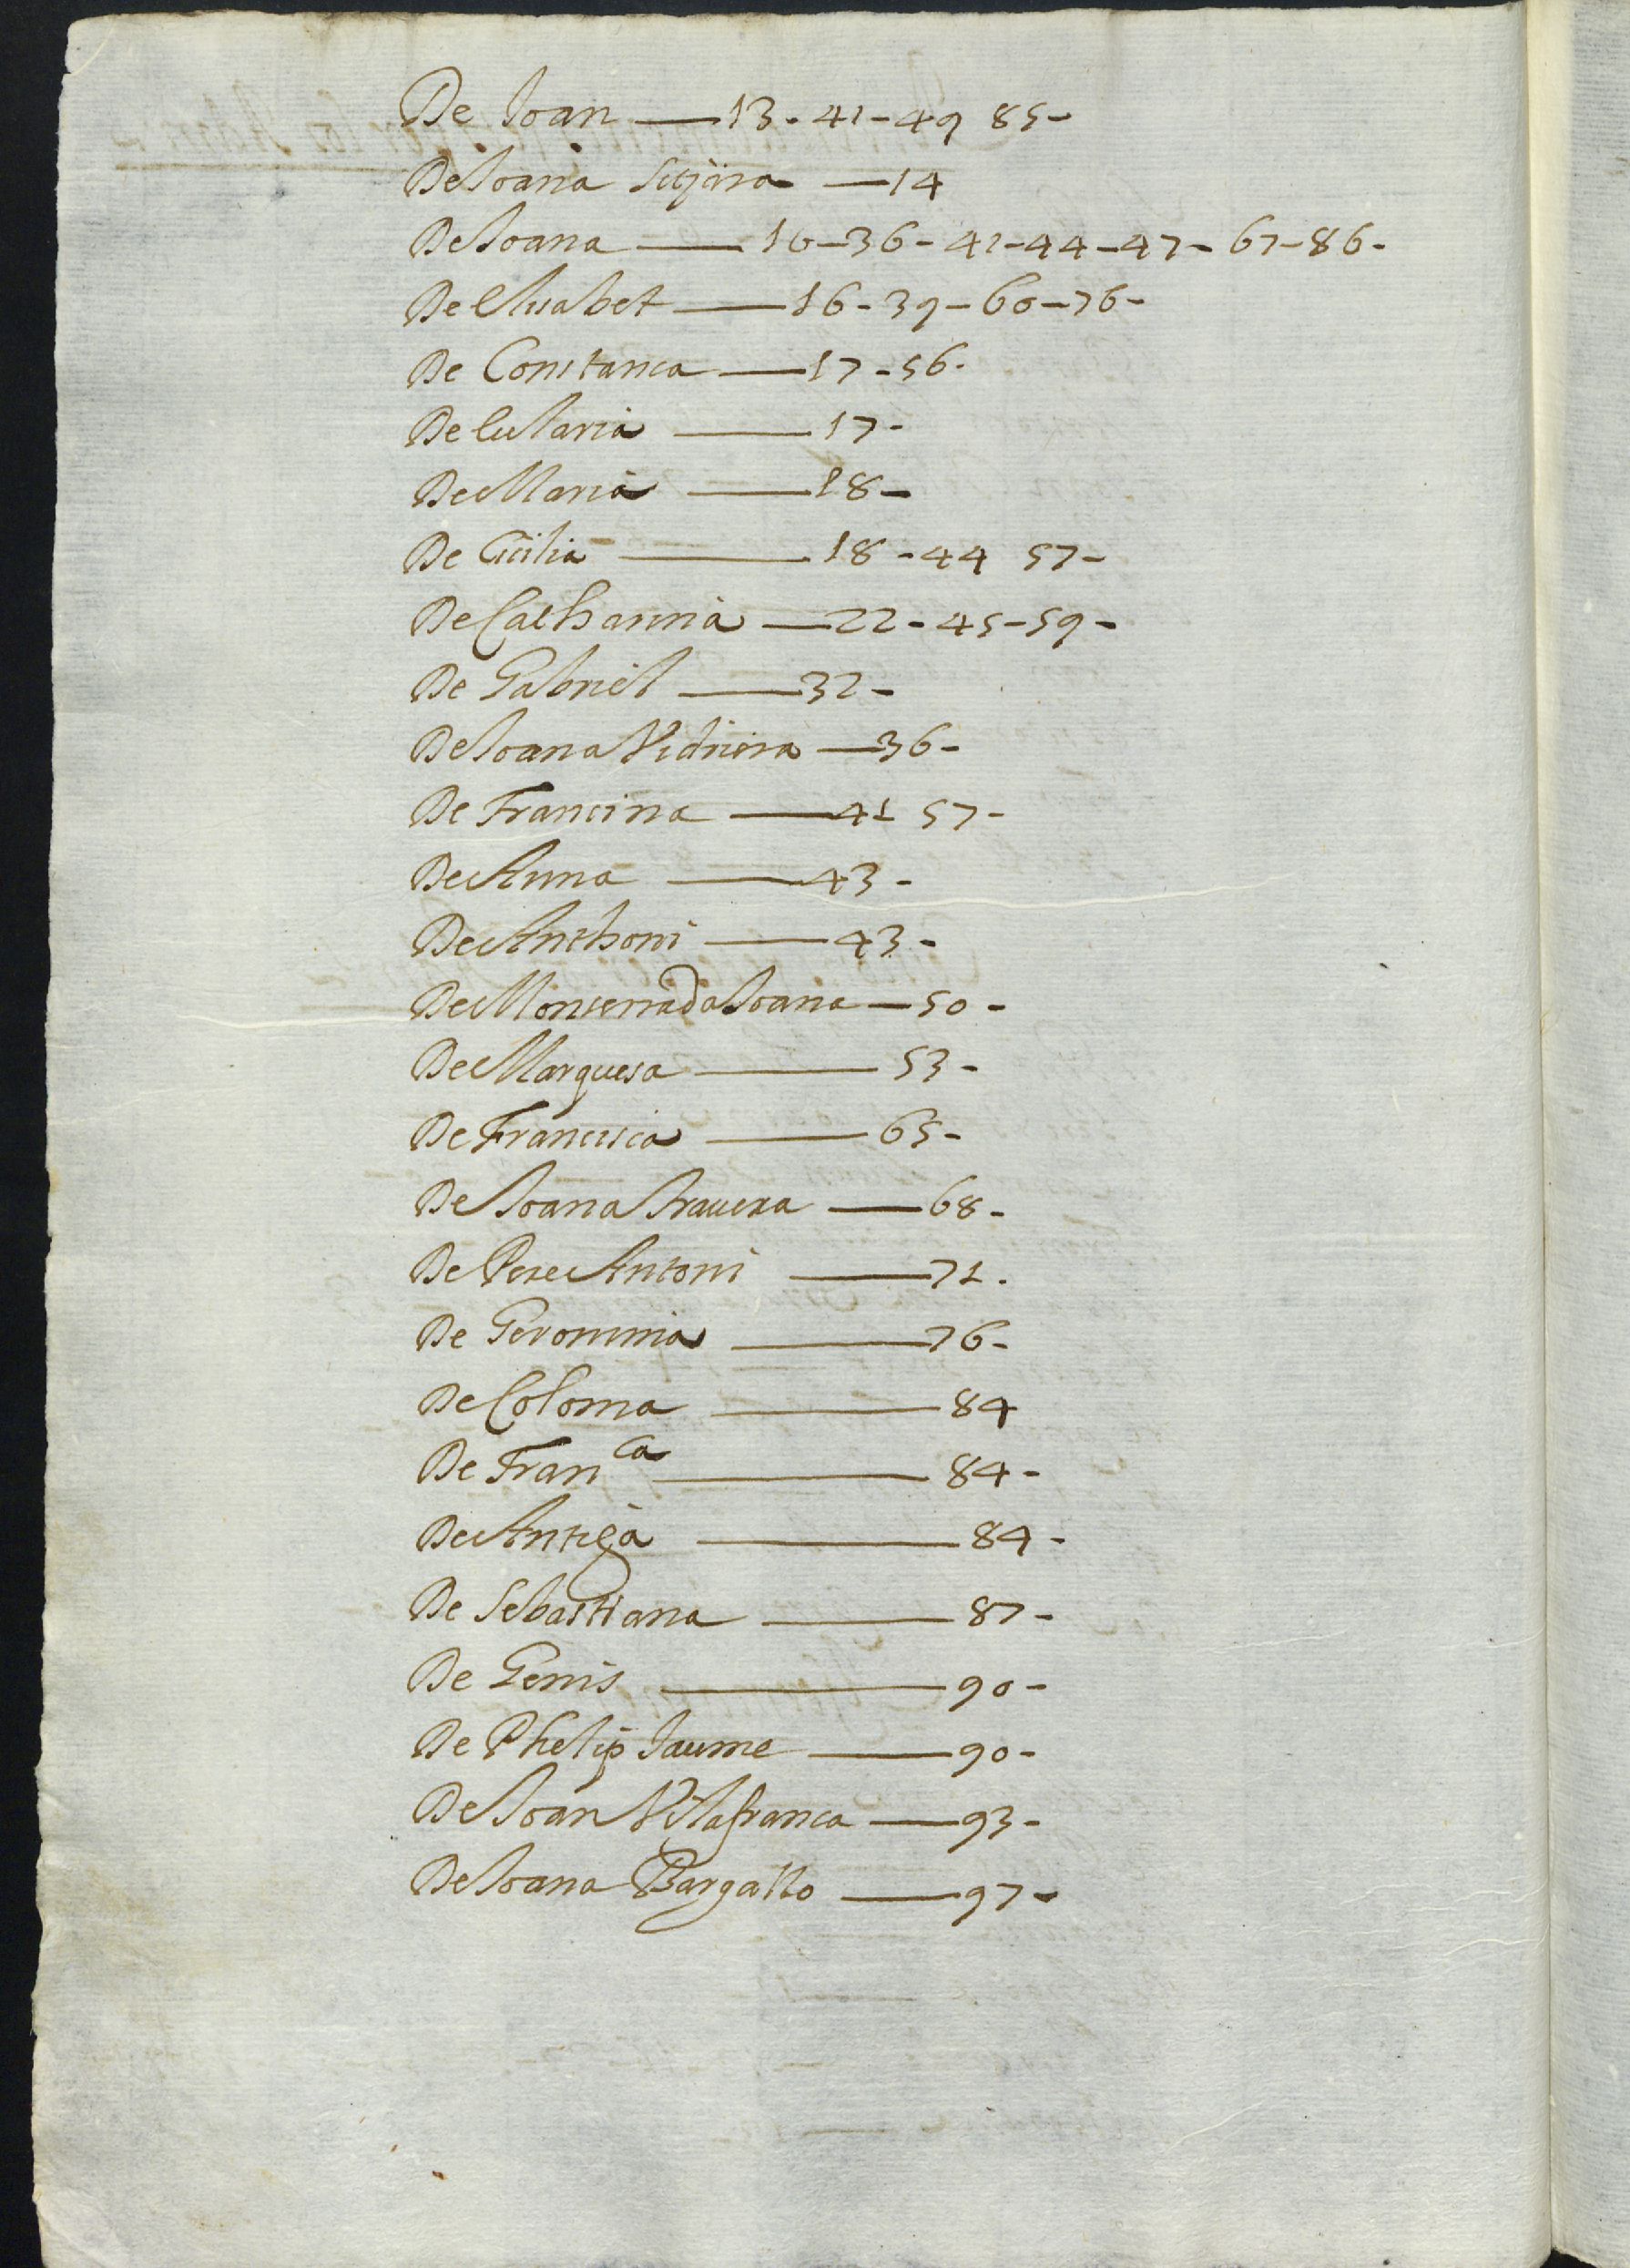 De Joan — 13 - 41 - 49 85 -
De Joana Sitjara — 14
De Joana — 16 - 36 - 41 - 44 - 47 - 67 - 86 -
De Elisabet — 16 - 39 - 60 - 76 -
De Constanca — 17 - 56 -
De Eularia — 17 -
De Maria — 18 -
De Cicilia — 18 - 44 57 -
De Catharina — 22 - 45 - 59 -
De Gabriel — 32 -
De Joana Vidriera — 36 -
De Francina — 41 57 -
De Anna — 43 -
De Anthoni — 43 -
De Monserrada Joana — 50 -
De Marquesa — 53 -
De Francisca — 65 -
De Joana Travera — 68 -
De Pere Antoni — 71 .
De Geronima — 76 -
De Coloma — 84
De Fran^ca — 84 -
De Antiga — 84 -
De Sebastiana — 87 -
De Genis — 90 -
De Phelip Jaume — 90 -
De Joan Vilafranca — 93 -
De Joana Bargallo — 97 -